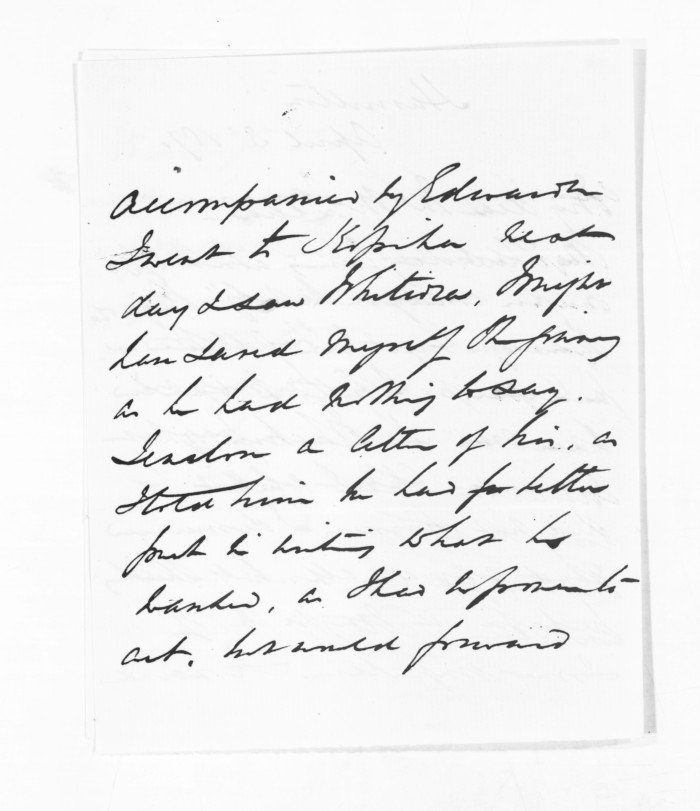 accompanied by Edwards
I went to Kopiha next
day I saw Whitiora, I might
have saved myself the journey
as he had nothing to say.
I enclose a letter of his, as
I told him he had far better
put in writing what he
wanted, as I had no power to
act, but would forward